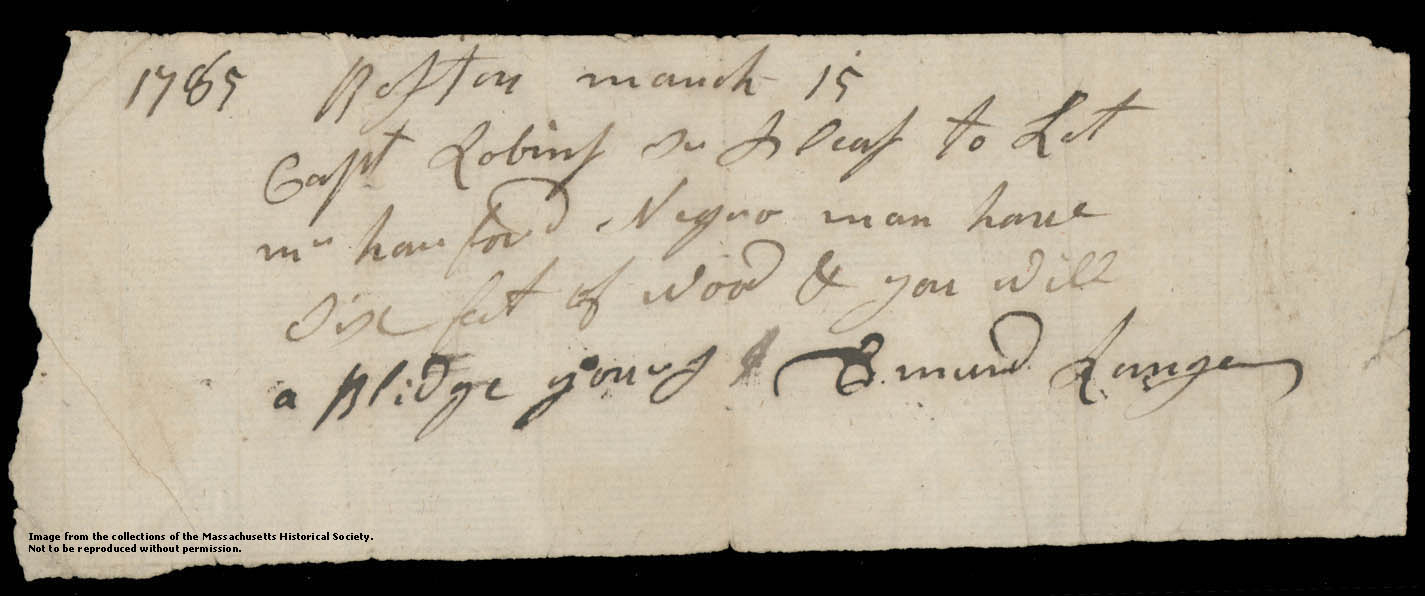 1785 Boston march 15
Capt Robins Sr Pleas to Let
mr han ford Negro man have
Six feet of Wood & you will
a Blidge yours Emund Ranger
Image from the collections of the Massachusetts Historical Society.
Not to be reproduced without permission.